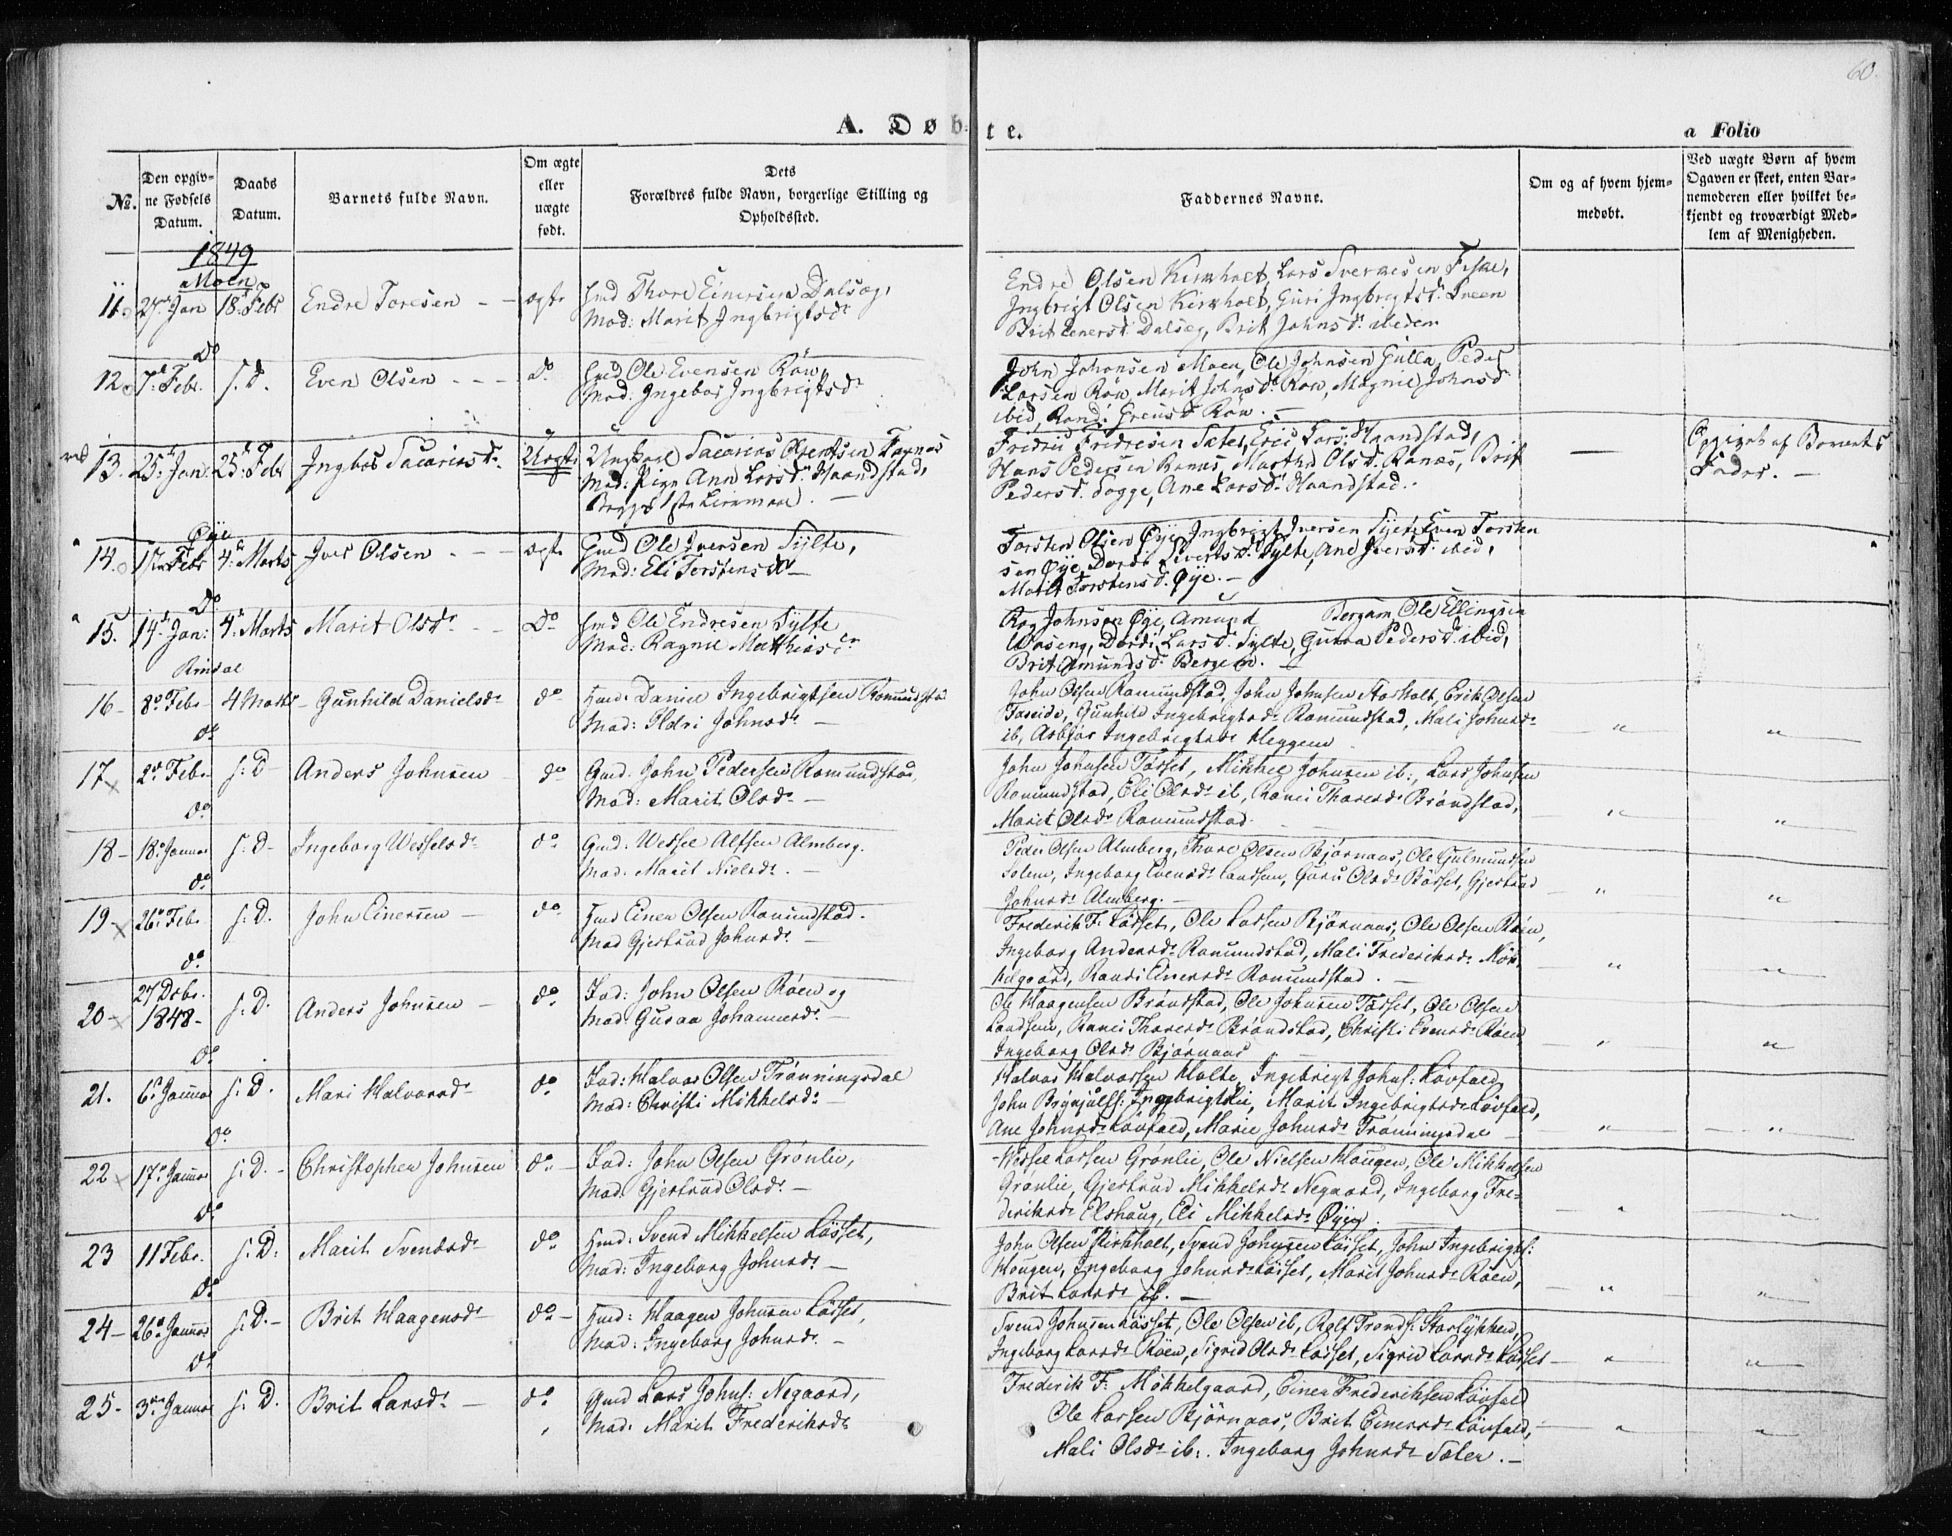 60.
A. Døbte.
a Folio
No.
Den opgivne Fødsels Datum.
Daabs Datum.
Barnets fulde Navn.
Om ægte eller uægte født.
Dets Forældres fulde Navn, borgerlige Stilling og Opholdssted.
Faddernes Navne.
Om og af hvem hjemmedøbt.
Ved uægte Børn af hvem Ogaven er skeet, enten Barnemoderen eller hvilket bekjendt og troværdigt Medlem af Menigheden.
1849
Moen
11. 27. Jan 18. Febr Endre Toresen - - ægte Gmd Thore Einersen Dalsæg,
Mod: Marit Ingbrigtsdr
Endre Olsen Kirkholt, Lars Sverkesen Fiske,
Ingbrigt Olsen Kirkholt, Guri Ingbrigtsd. Sveen
Brit Einersd. Dalseg, Brit Johnsd. ibidem
Do
12. 7. Febr. s. d. Even Olsen - - - do Gmd Ole Evensen Røn,
Mod: Ingebor Ingbrigtsdr
John Johansen Moen, Ole Johnsen Gulla, Peder
Larsen Røn, Marit Johnsd. Røn, Magnil Johnsdr
ibid, Randi Greusd. Røn. -
13. 25. Jan: 25. Febr Ingbor Sacariasdr. Uægte Ungkarl Sacarias Olsen
Mod: Pige Ann Larsdr. Haandstad,
Begges 1ste Leiermaal. -
Hans Pedersen Ranæs, Marthe Olsd. Ranæs, Brit
Pedersd. Togge, Ane Larsd. Haandstad.
Opgivet af Barnets
Fader. -
Øye
14. 17. Febr 4. Marts Iver Olsen - - - ægte Gmd Ole Iversen Sylte,
Mod: Eli Torstensdr -
Torsten Olsen Øye, Ingbrigt Iversen Sylte, Even Torsten
sen Øye, Dordi Sivertsd. Sylte, Ane Iversd. ibid,
Marit Torstensd. Øye. -
Do
15. 14. Jan: 4. Marts Marit Olsdr - - Do Gmd Ole Endresen Sylte
Mod: Ragnil Matthiasdr
Rog Johnsen Øye, Amund Bergem, Ole Ellingsen
Dordi Larsd. Sylte, Guroa Pedersd. ibid,
Brit Amundsd. Bergem.
Rindal
16 - 8. Febr 4 Marts - Gunhild Danielsdr do Gmd: Daniel Ingebrigtsen Romundstad
Mod: Ildri Johnsdr -
John Olsen Romundstad, John Johnsen Storholt, Erik Olsen
Gunhild Ingebrigtsdr Romundstad, Mali Johnsdr
ib, Asbjør Ingebrigtsdr Heggem
do
17 2d Febr s: D - Anders Johnsen do Gmd: John Pedersen Romundstad,
Mod: Marit Olsdr -
John Johnsen Tørset, Mikkel Johnsen ib:, Lars Johnsen
Romundstad, Eli Olsdr ib, Ranei Thoresdr Brøndstad,
Marit Olsdr Romundstad.
do
18 - 18. Januar s: D - Ingeborg Wesselsdr do Gmd: Wessel Alfsen Almberg.
Mod: Marit Nielsdr. -
Peder Olsen Almberg, Thore Olsen Bjørnaas, Ole Gulmundsen
Solem, Ingeborg Evensdr Landsem, Guru Olsdr Bøsset, Gjertrud
Johnsdr Almberg. -
do
19 - 26. Febr s: D. John Einersen - do Gmd Einer Olsen Romundstad.
Mod Gjertrud Johnsdr -
Frederik F: Løsset, Ole Larsen Bjørnaas, Ole Olsen Røen,
Ingeborg Andersdr Romundstad, Mali Frederiksdr Møk
kelgaard, Randi Einersdr Romundstad.
do
20 - 27 Debr. 1848 - s: D. Anders Johnsen - do Ind: John Olsen Røen og
Mod: Guraa Johannesdr -
Ole Haagensen Brøndstad, Ole Johnsen Tørset, Ole Olsen
Landsem, Ranei Thoresdr Brøndstad, Christi Evensdr Røen
Ingeborg Olsdr Bjørnaas
do
21. 6. Januar s: D. Mari Halvorsdr do Ind: Halvor Olsen Trønningsdal
Mod: Christi Mikkelsdr -
Halvor Halvorsen Holte, Ingebrigt Johns: Løvfald
John Brynjulfs: Ingebrigtlie, Marit Ingebrigtsdr Løvfald,
Ane Johnsdr Løvfald, Marie Johnsdr Trønningsdal
do
22 17. Januar s: D. - Christopher Johnsen do - Ind: John Olsen Grønlie,
Mod: Gjertrud Olsdr -
Wessel Larsen Grønlie, Ole Nielsen Haugen, Ole Mikkelsen
Grønlie, Gjertrud Mikkelsdr Negaard, Ingeborg Fre=
deriksdr Elshaug, Eli Mikkelsdr Øyen.
do
23 11 Febr. s: D: Marit Svendsdr do Gmd: Svend Mikkelsen Løsset,
Mod: Ingeborg Johnsdr -
John Olsen Kirkholt, Svend Johnsen Løsset, John Ingebrigts:
Haugen, Ingeborg Johnsdr Løsset, Marit Johnsdr Røen,
Brit Larsdr ib. -
do
24 - 26. Januar s: D. - Brit Haagensdr do - Gmd: Haagen Johnsen Løsset,
Mod: Ingeborg Johnsdr. -
Svend Johnsen Løsset, Ole Olsen ib, Rolf Tronds: Storlykken,
Ingeborg Larsdr Røen, Sigrid Olsdr Løsset, Sigrid Larsdr Løsset
do
25 - 3. Januar s: D. Brit Larsdr - do Gmd Lars Johns: Negaard,
Mod: Marit Frederiksdr
Frederik F: Møkkelgaard, Einer Frederiksen Løvfald
Ole Larsen Bjørnaas, Brit Einersdr Løvfald,
Mali Olsdr ib:. Ingeborg Johnsdr Sæter. -